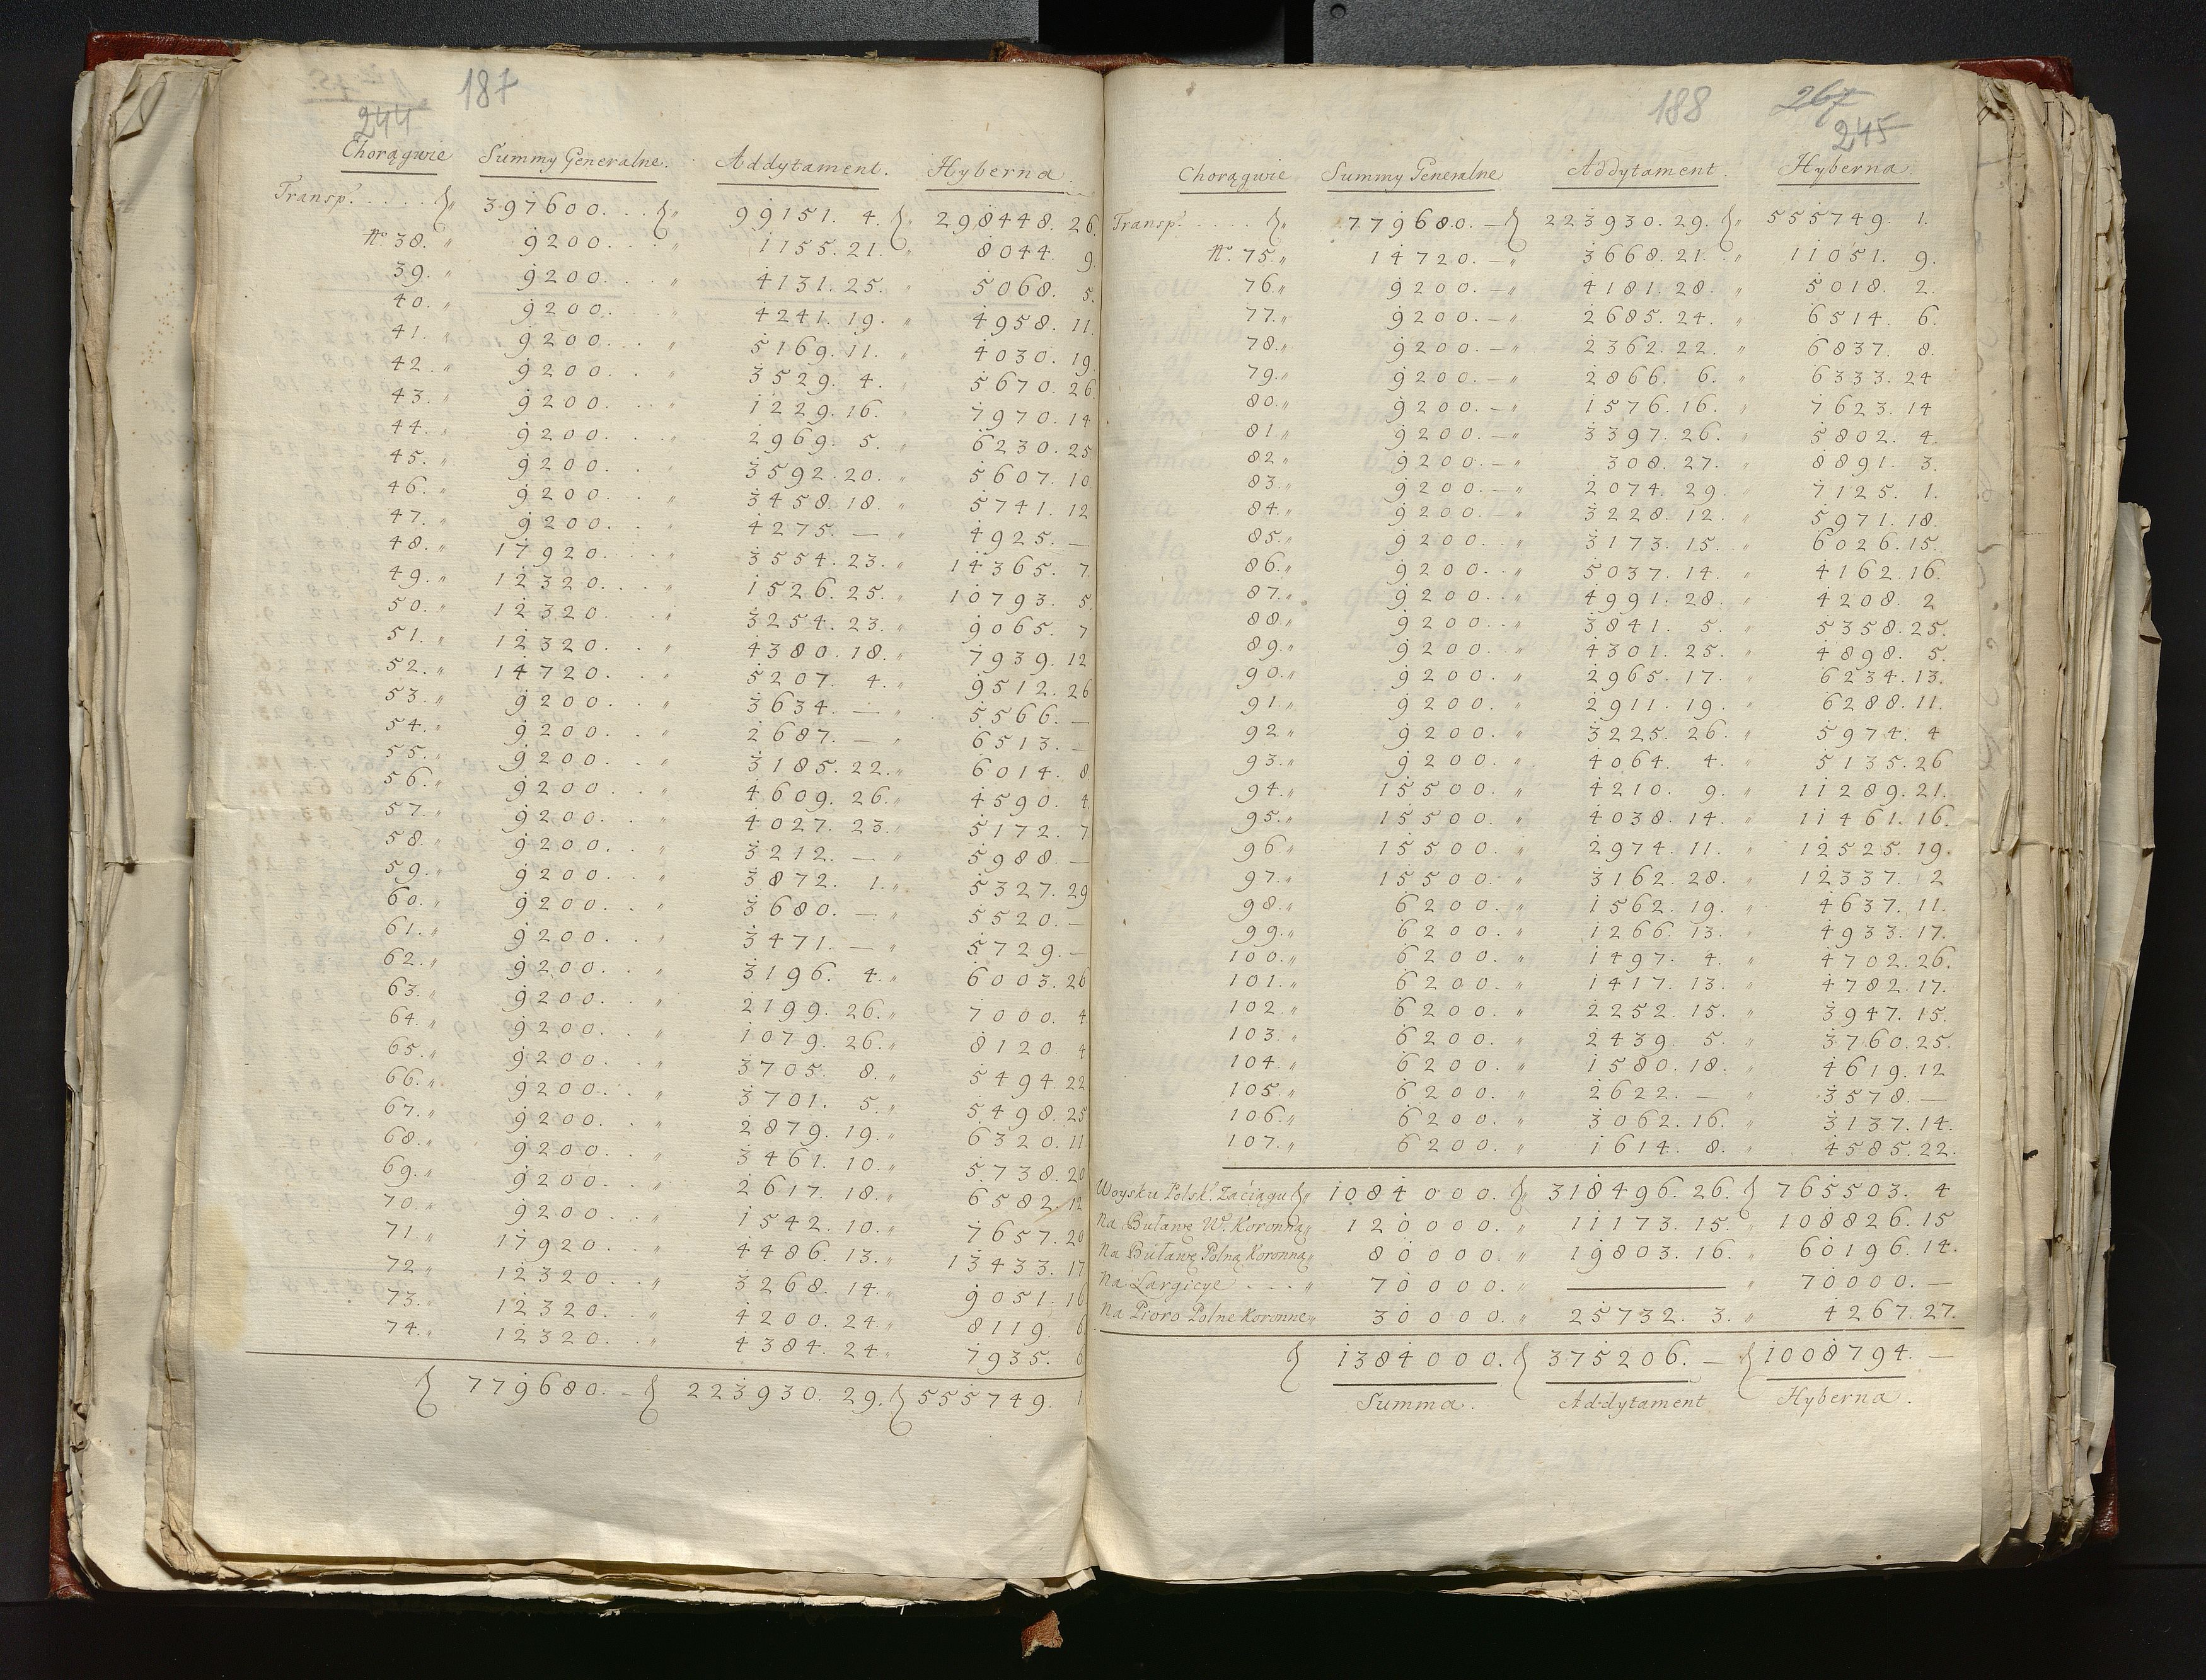 187
244
Chorągwie Summy Generalne. Addytament. Hyberna.
Transp. . . . . 397600. . . 99151. 4. 298448. 26.
No 38. 9200. . . 1155. 21. 8044. 9.
39. 9200. . . 4131. 25. 5068. 5.
40. 9200. . . 4241. 19. 4958. 11.
41. 9200. . . 5169. 11. 4030. 19
42. 9200. . . 3529. 4. 5670. 26.
43. 9200. . . 1229. 16. 7970. 14
44. 9200. . . 2969. 5. 6230. 25
45. 9200. . . 3592. 20. 5607. 10
46. 9200. . . 3458. 18. 5741. 12
47. 9200. . . 4275. — 4925. —
48. 17920. . . . 3554. 23. 14365. 7.
49. 12320. . . . 1526. 25. 10793. 5.
50. 12320. . . . 3254. 23. 9065. 7
51. 12320. . . 4380. 18. 7939. 12
52. 14720. . . 5207. 4. 9512. 26
53. 9200. . 3634. — 5566. —
54. 9200. . 2687. — 6513. —
55. 9200. . 3185. 22. 6014. 8.
56. 9200. . 4609. 26. 4590. 4.
57. 9200. . 4027. 23. 5172. 7
58. 9200. . 3212. — 5988. —
59. 9200. . 3872. 1. 5327. 29
60. 9200. . 3680. — 5520. —
61. 9200. . 3471. — 5729. —
62. 9200. . 3196. 4. 6003. 26
63. 9200. . 2199. 26. 7000. 4
64. 9200. . 1079. 26. 8120 4
65. 9200. . 3705. 8. 5494. 22
66. 9200. . 3701. 5. 5498. 25
67. 9200. . 2879. 19. 6320. 11
68. 9200. . 3461. 10. 5738. 20
69. 9200. . 2617. 18. 6582. 12
70. 9200. . 1542. 10. 7657. 20
71. 17920. . 4486. 13. 13433. 17
72 12320. . 3268. 14. 9051. 16
73. 12320. . 4200. 24. 8119. 6
74. 12320. . 4384. 24. 7935. 6
779680. — 223930. 29. 555749. 1
188 267
245
Chorągwie Summy Generalne Addytament. Hyberna.
Transp. . . . . 779680. — 223930. 29. 555749. 1.
No. 75. 14720. — 3668. 21. 11051. 9.
76. 9200. — 4181. 28. 5018. 2.
77. 9200. — 2685. 24. 6514. 6.
78. 9200. — 2362. 22. 6837. 8.
79. 9200. — 2866. 6. 6333. 24
80. 9200. — 1576. 16. 7623. 14
81. 9200. — 3397. 26. 5802. 4.
82. 9200. — 308. 27. 8891. 3.
83. 9200. — 2074. 29. 7125. 1.
84. 9200. 3228. 12. 5971. 18.
85. 9200. . 3173. 15. 6026. 15.
86. 9200. . 5037. 14. 4162. 16.
87. 9200. . 4991. 28. 4208. 2
88. 9200. . 3841. 5. 5358. 25.
89. 9200. . 4301. 25. 4898. 5.
90. 9200. 2965. 17. 6234. 13.
91. 9200. 2911. 19. 6288. 11.
92 9200. 3225. 26. 5974. 4
93. 9200. 4064. 4. 5135. 26
94. 15500. 4210. 9. 11289. 21.
95. 15500. 4038. 14. 11461. 16.
96 15500. 2974. 11. 12525. 19.
97. 15500. 3162. 28. 12337. 2
98. 6200. 1562. 19. 4637. 11.
99. 6200. 1266. 13. 4933. 17.
100. 6200. 1497. 4. 4702. 26.
101. 6200. 1417. 13. 4782. 17.
102. 6200. 2252. 15. 3947. 15.
103. 6200. 2439. 5. 3760. 25.
104. 6200. 1580. 18. 4619. 12
105. 6200. 2622. — 3578. —
106. 6200. 3062. 16. 3137. 14.
107. 6200. 1614. 8. 4585. 22.
Woysku Polsk. Zaciągu 1084000. 318496. 26. 765503. 4
Na Buławę W. Koronną 120000. 11173. 15. 108826. 15
Na Buławę Polną Koronną 80000. 19803. 16. 60196. 14.
Na Largicye . . . 70000. — 70000. —
Na Pioro Polne Koronne 30000. 25732. 3. 4267. 27.
1384000. 375206. — 1008794. —
Summa. Addytament Hyberna.